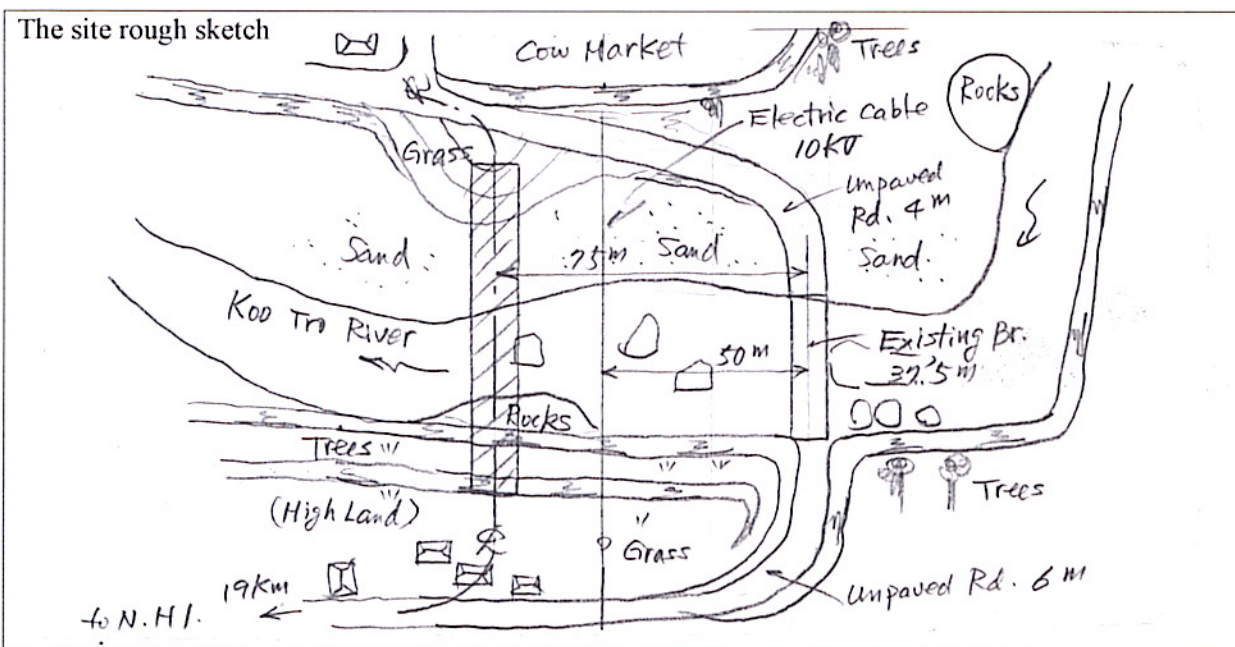 The site rough sketch
Cow Market
Trees
Rocks
Electric Cable
10KV
Grass
Unpaved
Rd. 4m
Sand
75m
Sand
Sand
Koo Tro River
50m
Existing Br.
37.5m
Rocks
Trees
(High Land)
Trees
Grass
19Km
Unpaved Rd. 6m
to N.H1.